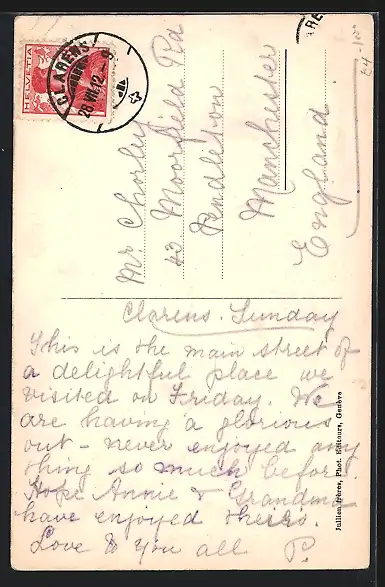 HELVETIA
CLARENS
28.VII.12.–9
Mr Chorley
43 Moorfield Rd
Pendleton
Manchester
England
Clarens. Sunday
This is the main street of
a delightful place we
visited on Friday. We
are having a glorious
out - never enjoyed any
thing so much before.
Hope Annie & Grandma
have enjoyed theirs.
Love to you all P.
Jullien frères, Phot. Editeurs, Genève